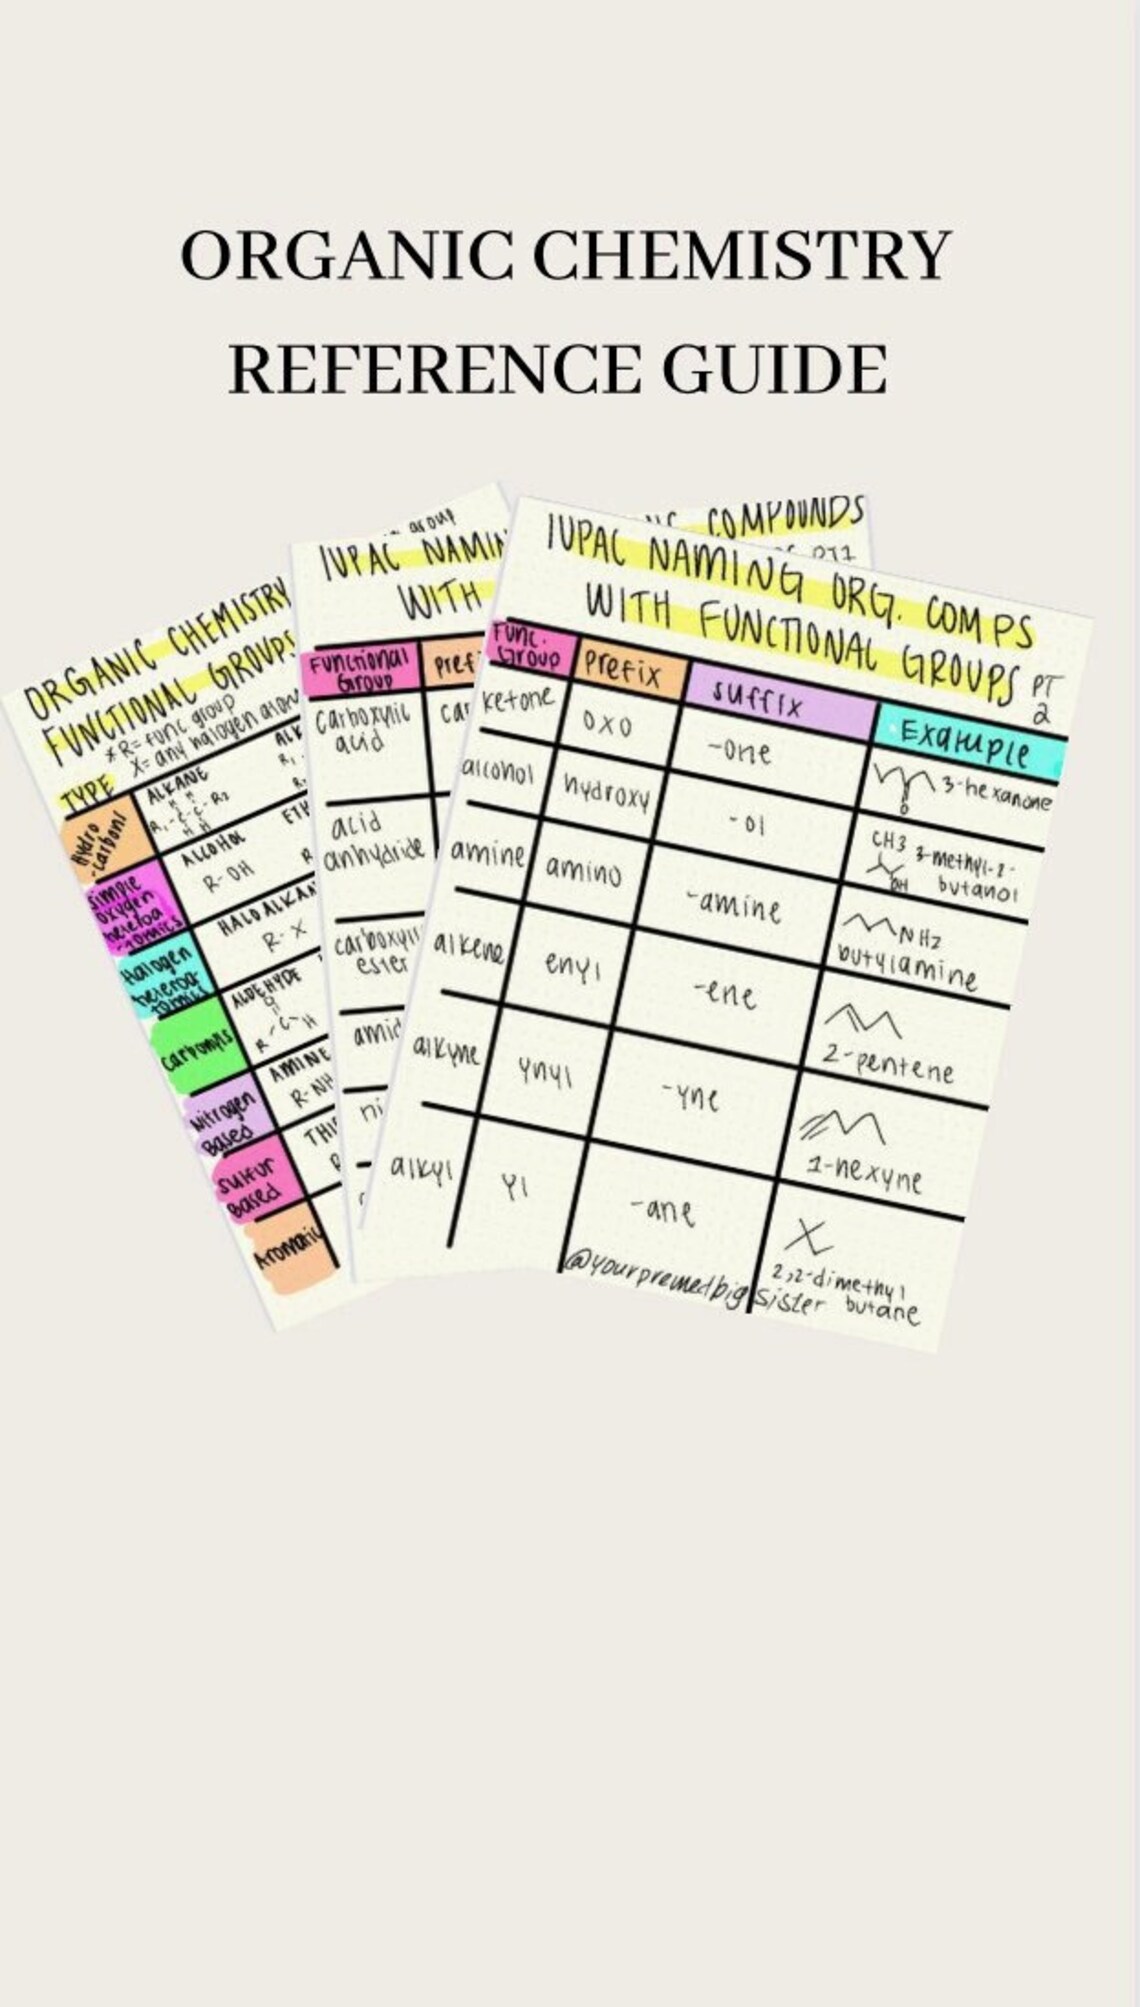 ORGANIC CHEMISTRY
REFERENCE GUIDE
ORGANIC CHEMISTRY
FUNCTIONAL GROUPS
*R= func group
X= any halogen atom
TYPE
Hydro
-carbons
ALKANE
R₁-C-C-R₂
H H
H H
ALK
R₁-
Simple
oxygen
heteroa
-tomics
ALCOHOL
R-OH
ETH
R
Halogen
heteroa-
tomics
HALOALKAN
R-X
Carbonyls
ALDEHYDE
O
R-C-H
Nitrogen
Based
AMINE
R-NH
Sulfur
Based
THI
R
Aromatic
group
IUPAC NAMIN
WITH
Functional
Group
Pref
carboxylic
acid
car
acid
anhydride
carboxyli
ester
amid
ni
COMPOUNDS
PT1
IUPAC NAMING ORG. COMPS
WITH FUNCTIONAL GROUPS PT
2
Func.
Group
Prefix
Suffix
Example
ketone
oxo
-one
O
3-hexanone
alcohol
hydroxy
-ol
CH3
OH
butanol
amine
amino
-amine
NH2
butylamine
alkene
enyl
-ene
2-pentene
alkyne
ynyl
-yne
1-hexyne
alkyl
yl
-ane
2,2-dimethyl
butane
@yourpremedbigsister